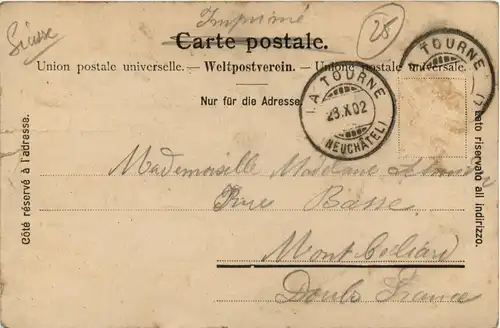 Imprimé
Suisse
25
Carte postale.
Union postale universelle. — Weltpostverein. — Unione postale universale.
Nur für die Adresse.
LA TOURNE
23.X.02
(NEUCHÂTEL)
TOURNE
Côté réservé à l'adresse.
Lato riservato all indirizzo.
Mademoiselle Madelaine
Rue Basse
Montbeliard
Doubs France